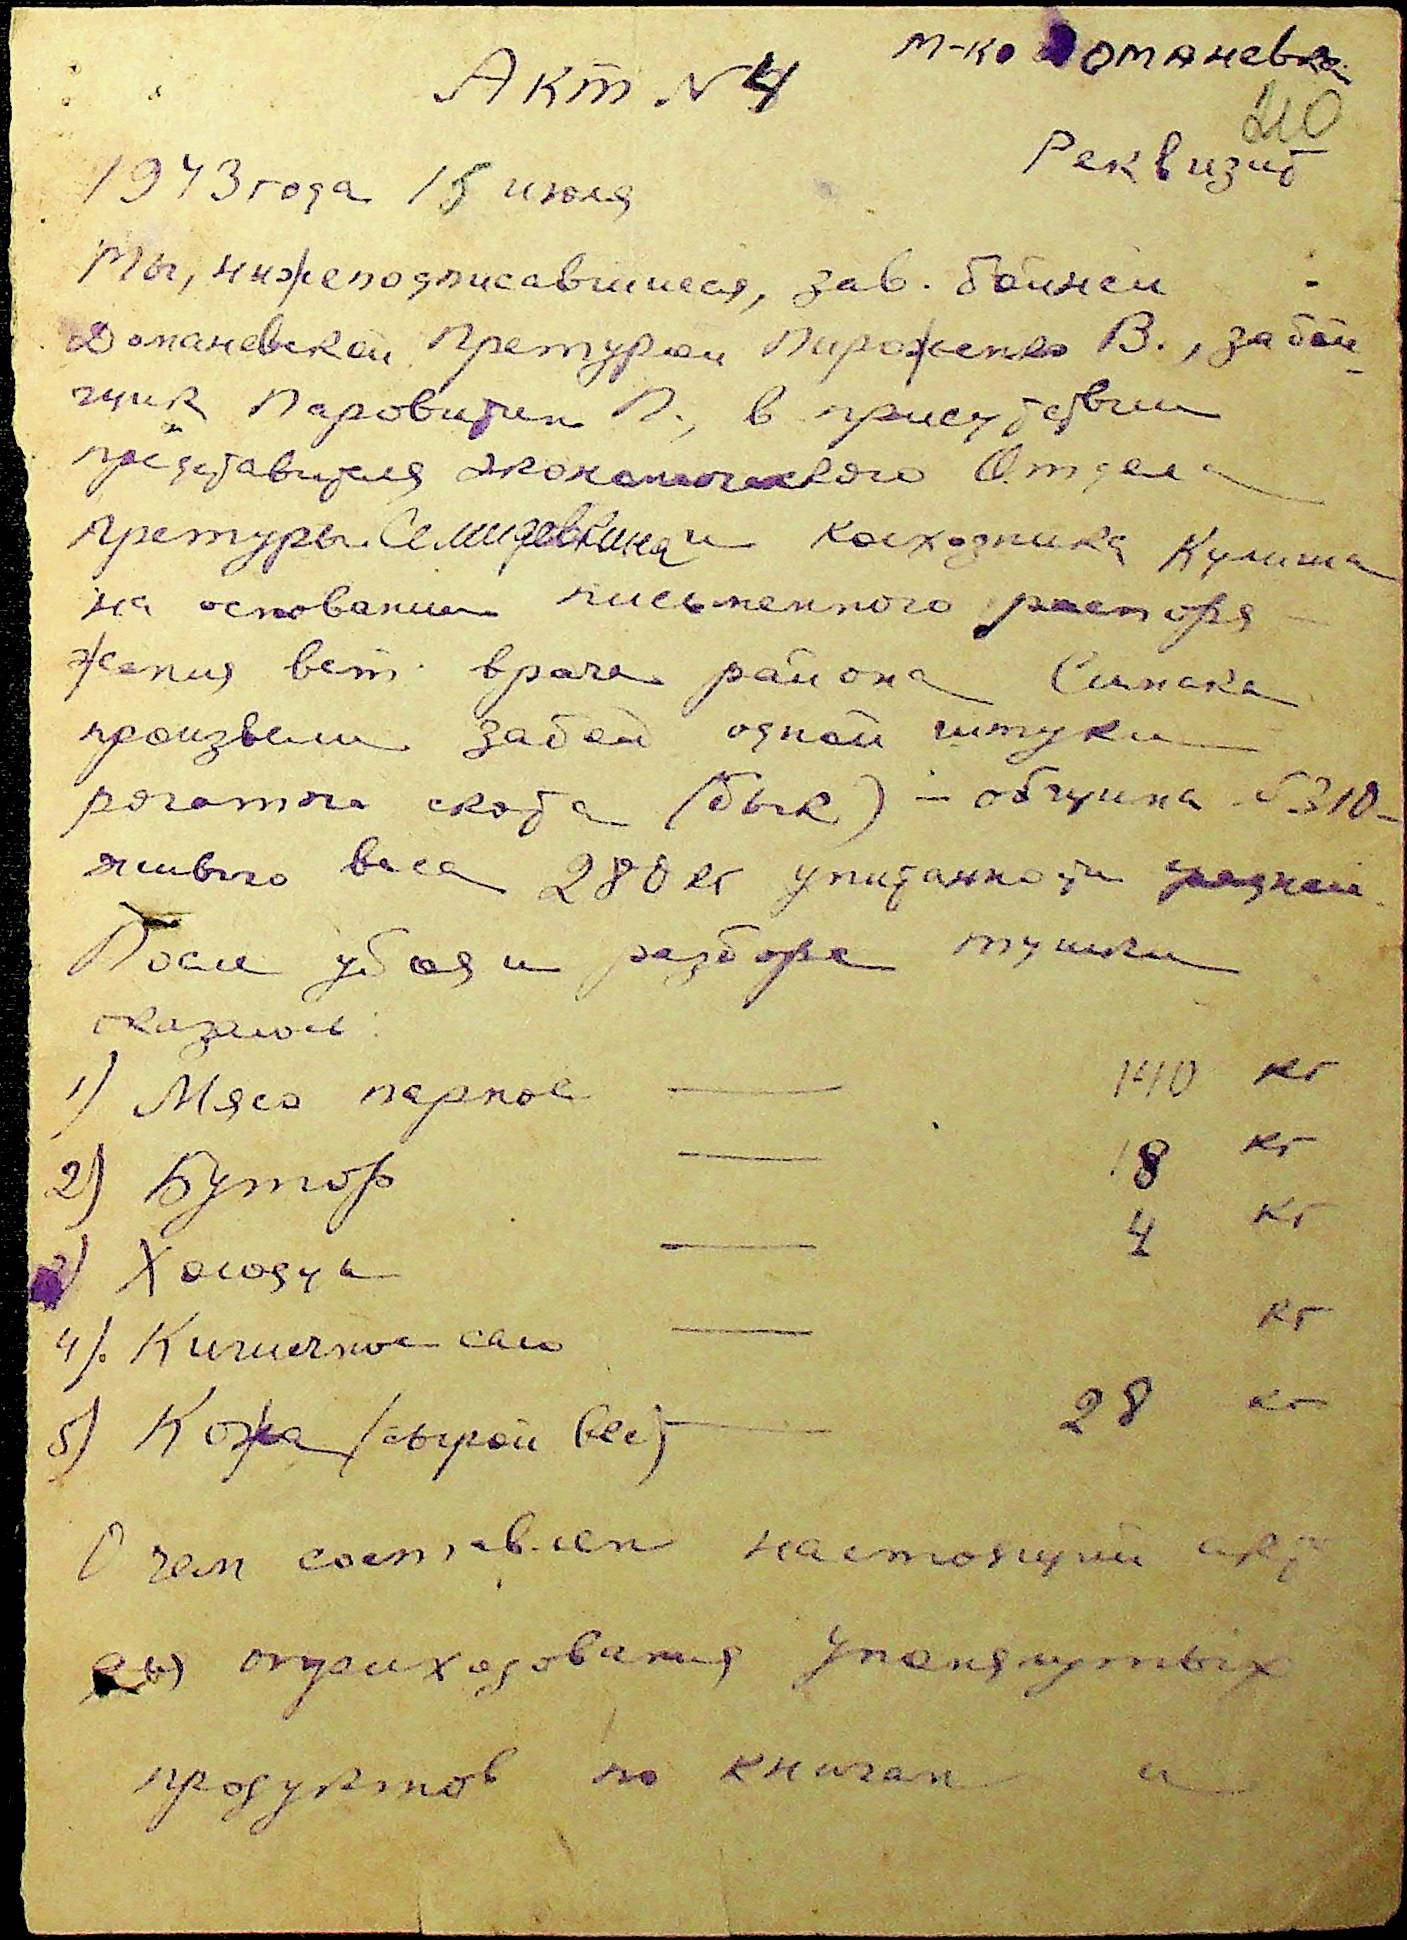 м-ко Доманевка
Акт № 4
210
Реквизит
1943 года 15 июля
Мы, нижеподписавшиеся, зав. бойней
Доманевской Претурой Пироженко В., забой-
щик Паровитин П., в присутствии
представителя экономического Отдела
претуры Семидевкина и колхозника Кулиша
на основании письменного распоря-
жения вет. врача района Симака
произвели забой одной штуки
рогатого скота (бык) – община 5310-
живого веса 280 кг упитанности средней
После убоя и разбора тушки
оказалось:
1) Мясо парное — 140 кг
2) Бутор — 18 кг
3) Холодца — 4 кг
4). Кишечное сало — кг
5) Кожа (сырой вес) — 28 кг
О чем составлен настоящий акт
для оприходования упомянутых
продуктов по книгам и